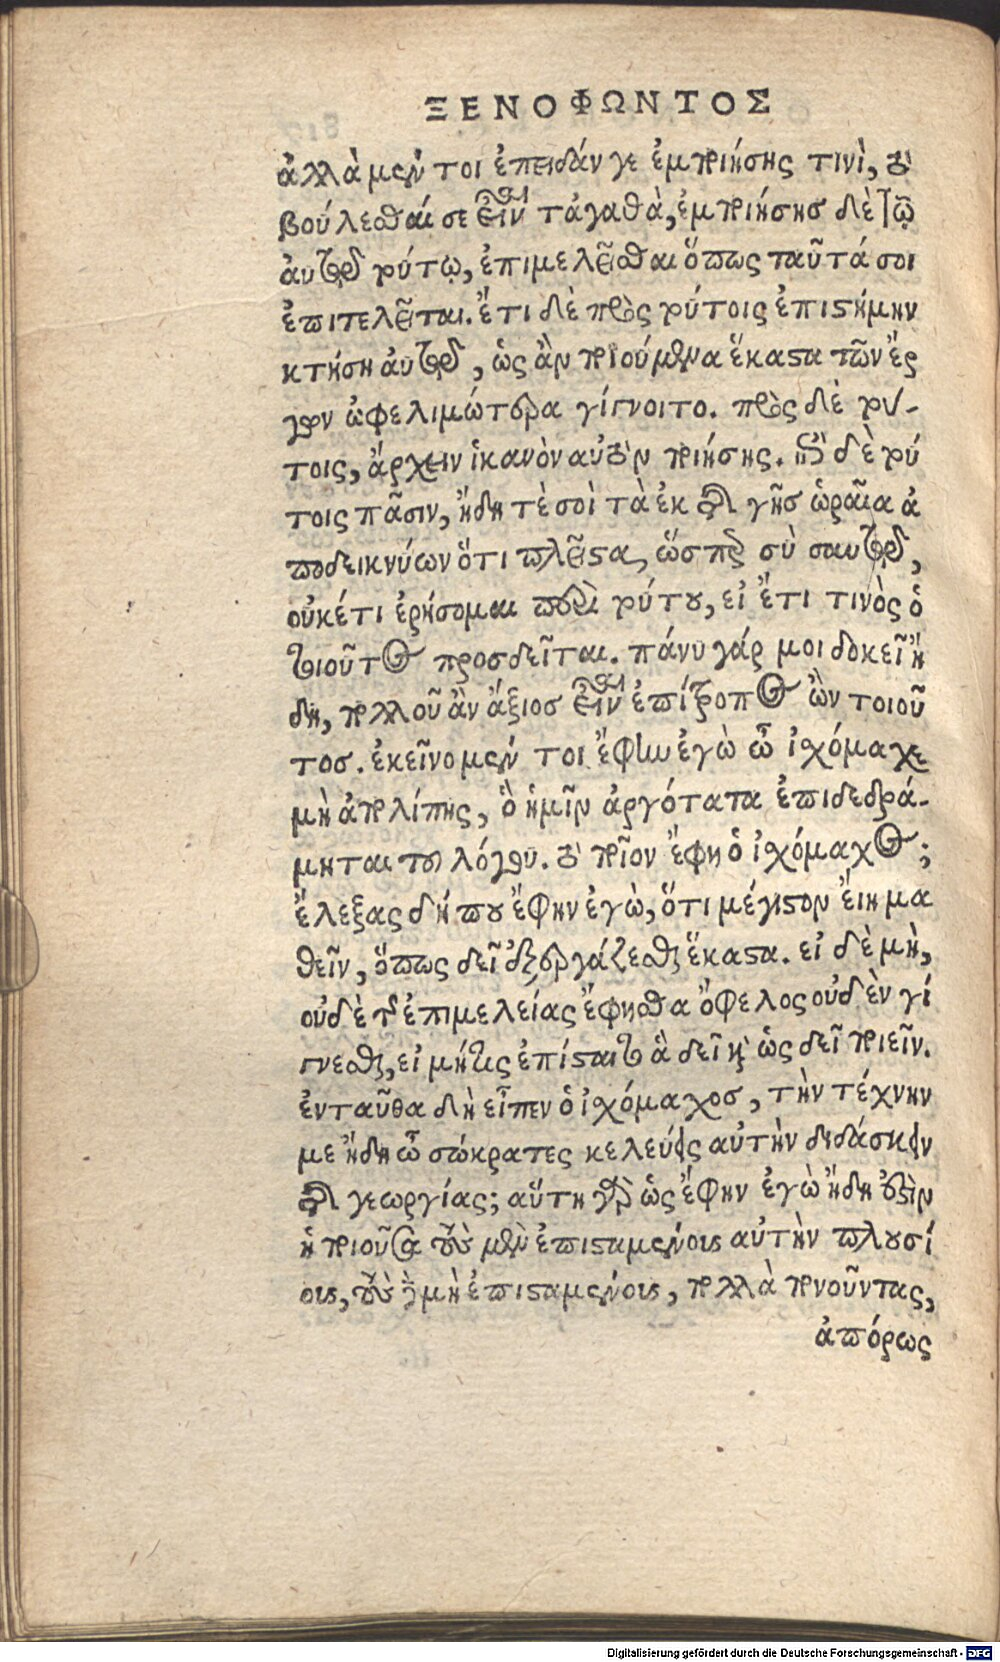 ΞΕΝΟΦΩΝΤΟΣ
ἀλλὰ μέν τοι ἐπειδάν γε ἐμποιήσης τινὶ, τὸ
βούλεσθαί σε εἶναι τἀγαθὰ, ἐμποιήσης δὲ τῷ
αὐτῷ τούτῳ, ἐπιμελεῖσθαι ὅπως ταῦτά σοι
ἐπιτελεῖται. ἔτι δὲ πρὸς τούτοις ἐπιστήμην
κτήση αὐτῷ, ὡς ἂν ποιούμενα ἕκαστα τῶν ἔρ
γων ὠφελιμώτερα γίγνοιτο. πρὸς δὲ τού-
τοις, ἄρχειν ἱκανὸν αὐτὸν ποιήσης. ἐπὶ δὲ τού
τοις πᾶσιν, ἥδηταί σοὶ τὰ ἐκ τῆς γῆς ὡραῖα ἀ
ποδεικνύων ὅτι πλεῖστα, ὥσπερ σὺ σαυτῷ,
οὐκέτι ἐρήσομαι περὶ τούτου, εἰ ἔτι τινὸς ὁ
τοιοῦτος προσδεῖται. πάνυ γάρ μοι δοκεῖ ἤ
δη, πολλοῦ ἂν ἄξιος εἶναι ἐπίτροπος ὢν τοιοῦ
τος. ἐκεῖνο μέν τοι ἔφην ἐγὼ ὦ ἰχόμαχε
μὴ ἀπολίπης, ὃ ἡμῖν ἀργότατα ἐπιδεδρά-
μηται τοῦ λόγου. τὸ ποῖον ἔφη ὁ ἰχόμαχος;
ἔλεξας δή που ἔφην ἐγὼ, ὅτι μέγιστον εἴη μα
θεῖν, ὅπως δεῖ ἐξεργάζεσθαι ἕκαστα. εἰ δὲ μὴ,
οὐδὲ τῆς ἐπιμελείας ἔφησθα ὄφελος οὐδὲν γί
γνεσθαι, εἰ μήτις ἐπίσταιτο ἃ δεῖ καὶ ὡς δεῖ ποιεῖν.
ἐνταῦθα δὴ εἶπεν ὁ ἰχόμαχος, τὴν τέχνην
με ἤδη ὦ σώκρατες κελεύεις αὐτὴν διδάσκειν
τῆς γεωργίας; αὕτη γὰρ ὡς ἔφην ἐγὼ ἤδη ἐστὶν
ἡ ποιοῦσα τοὺς μὲν ἐπισταμένους αὐτὴν πλουσί
ους, τοὺς δὲ μὴ ἐπισταμένους, πολλὰ πονοῦντας,
ἀπόρως